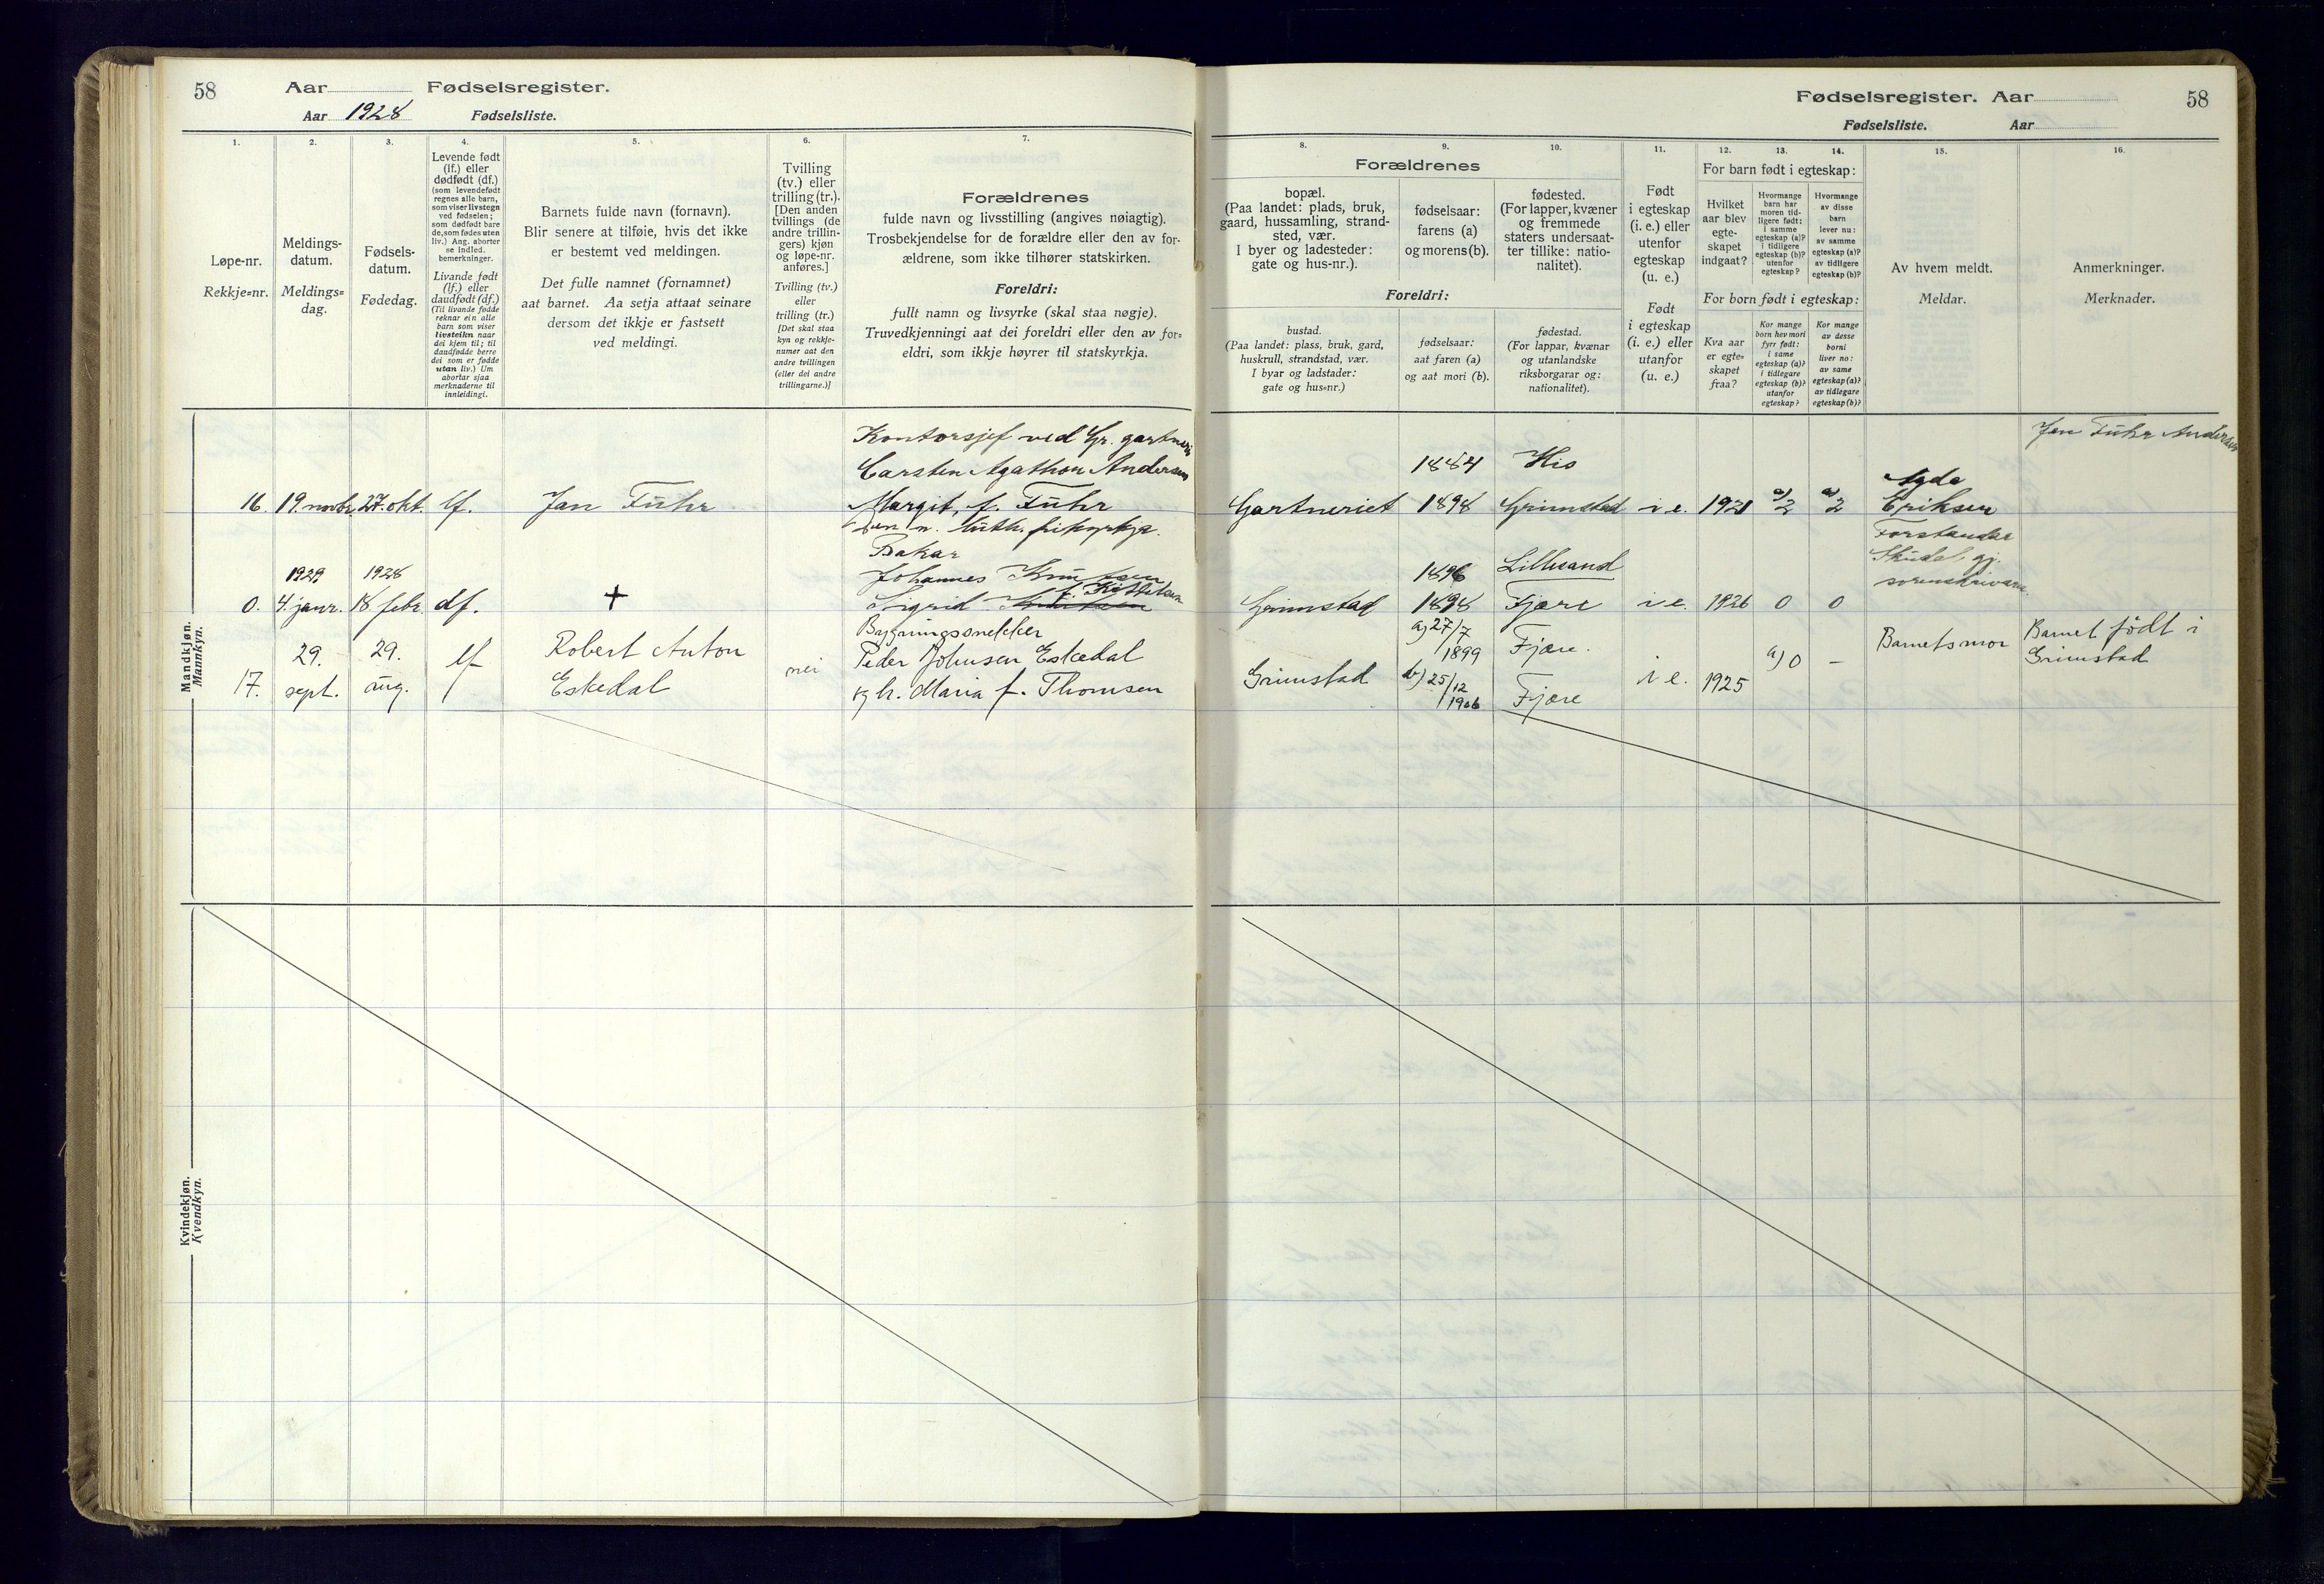 58
Aar Fødselsregister.
Aar 1928 Fødselsliste.
1.
Løpe-nr.
Rekkje=nr.
2.
Meldings-
datum.
Meldings=
dag.
3.
Fødsels-
datum.
Fødedag.
4.
Levende født
(lf.) eller
dødfødt (df.)
(som levendefødt
regnes alle barn,
som viser livstegn
ved fødselen;
som dødfødt bare
de, som fødes uten
liv.) Ang. aborter
se indled.
bemerkninger.
Livande født
(lf.) eller
daudfødt (df.)
(Til livande fødde
reknar ein alle
barn som viser
livsteikn naar
dei kjem til; til
daudfødde berre
dei som er fødde
utan liv.) Um
abortar sjaa
merknaderne til
innleidingi.
5.
Barnets fulde navn (fornavn).
Blir senere at tilføie, hvis det ikke
er bestemt ved meldingen.
Det fulle namnet (fornamnet)
aat barnet. Aa setja attaat seinare
dersom det ikkje er fastsett
ved meldingi.
6.
Tvilling
(tv.) eller
trilling (tr.).
[Den anden
tvillings (de
andre trillin-
gers) kjøn
og løpe-nr.
anføres.]
Tvilling (tv.)
eller
trilling (tr.)
[Det skal staa
kyn og rekkje-
numer aat den
andre tvillingen
(eller dei andre
trillingarne.)]
7.
Forældrenes
fulde navn og livsstilling (angives nøiagtig).
Trosbekjendelse for de forældre eller den av for-
ældrene, som ikke tilhører statskirken.
Foreldri:
fullt namn og livsyrke (skal staa nøgje).
Truvedkjenningi aat dei foreldri eller den av for=
eldri, som ikkje høyrer til statskyrkja.
Mandkjøn.
Mannkyn.
Kontorsjef ved Gr. gartneri
Carsten Agathon Andersen
16. 19. novbr. 27. okt. lf. Jan Führ Margit, f. Führ
luth. frikyrkja.
Bakar
1929 1928 Johannes Knutsen
0. 4. janr. 18. febr. df. + Sigrid
Bygningssnekker
29. 29. lf Robert Anton nei Peder Johnsen Eskedal
17. sept. aug. Eskedal h. Maria f. Thomsen
Kvindekjøn.
Kvendkyn.
Fødselsregister. Aar
58
Fødselsliste. Aar
8.
Forældrenes
bopæl.
(Paa landet: plads, bruk,
gaard, hussamling, strand-
sted, vær.
I byer og ladesteder:
gate og hus-nr.).
Foreldri:
bustad.
(Paa landet: plass, bruk, gard,
huskrull, strandstad, vær.
I byar og ladstader:
gate og hus=nr.)
9.
fødselsaar:
farens (a)
og morens (b).
fødselsaar:
aat faren (a)
og aat mori (b).
10.
fødested.
(For lapper, kvæner
og fremmede
staters undersaat-
ter tillike: natio-
nalitet).
fødestad.
(For lappar, kvænar
og utanlandske
riksborgarar og:
nationalitet).
11.
Født
i egteskap
(i. e.) eller
utenfor
egteskap
(u. e.)
Født
i egteskap
(i. e.) eller
utanfor
(u. e.)
12. 13. 14.
For barn født i egteskap:
Hvilket
aar blev
egte-
skapet
indgaat?
Hvormange
barn har
moren tid-
ligere født:
i samme
egteskap (a)?
i tidligere
egteskap (b)?
utenfor
egteskap?
Hvormange
av disse
barn
lever nu:
av samme
egteskap (a)?
av tidligere
egteskap (b)?
For born født i egteskap:
Kva aar
er egte=
skapet
fraa?
Kor mange
born hev mori
fyrr født:
i same
egteskap (a)?
i tidlegare
egteskap (b)?
utanfor
egteskap?
Kor mange
av desse
borni
liver no:
av same
egteskap (a)?
av tidlegare
egteskap (b)?
15.
Av hvem meldt.
Meldar.
16.
Anmerkninger.
Merknader.
Jan Führ Andersen
1884 His Agda
Gartneriet 1898 Grimstad i. e. 1921 a) 2 a) 2 Eriksen
Forstandar
1896 Lillesand gj.
sorenskrivaren
Grimstad 1898 Fjære i. e. 1926 0 0
a) 27/7
1899 Fjære. a) 0 – Barnets mor Barnet født i
Grimstad
Grimstad b) 25/12
1906 Fjære i e. 1925